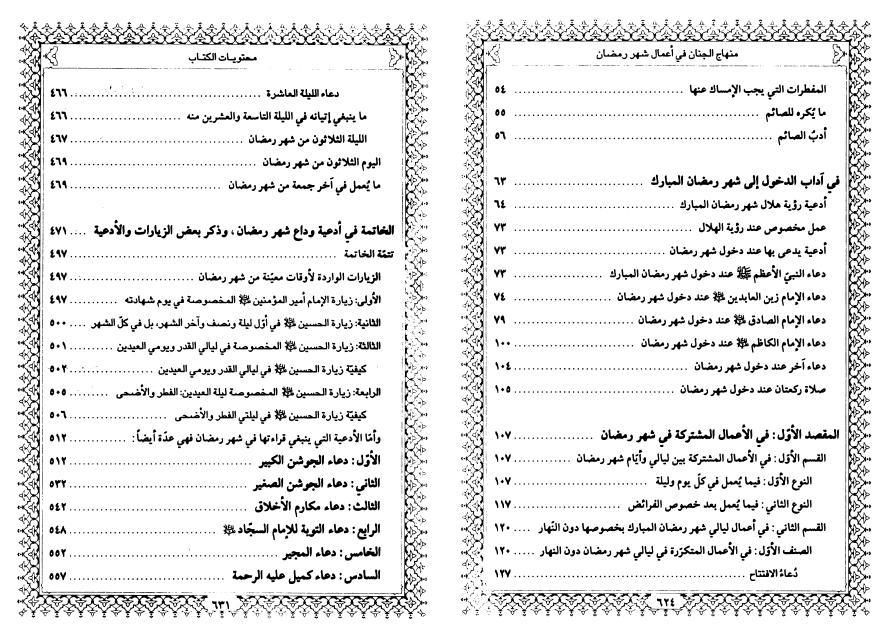 منهاج الجنان في أعمال شهر رمضان
المفطرات التي يجب الإمساك عنها ............ ٥٤
ما يُكره للصائم ............ ٥٥
أدبُ الصائم ............ ٥٦
في آداب الدخول إلى شهر رمضان المبارك ............ ٦٣
أدعية رؤية هلال شهر رمضان المبارك ............ ٦٤
عمل مخصوص عند رؤية الهلال ............ ٧٣
أدعية يدعى بها عند دخول شهر رمضان ............ ٧٣
دعاء النبيّ الأعظم ﷺ عند دخول شهر رمضان المبارك ............ ٧٣
دعاء الإمام زين العابدين عند دخول شهر رمضان ............ ٧٤
دعاء الإمام الصادق عند دخول شهر رمضان ............ ٧٩
دعاء الإمام الكاظم عند دخول شهر رمضان ............ ١٠٠
دعاء آخر عند دخول شهر رمضان ............ ١٠٤
صلاة ركعتان عند دخول شهر رمضان ............ ١٠٥
المقصد الأوّل : في الأعمال المشتركة في شهر رمضان ............ ١٠٧
القسم الأوّل : في الأعمال المشتركة بين ليالي وأيّام شهر رمضان ............ ١٠٧
النوع الأوّل : فيما يُعمل في كلّ يوم وليلة ............ ١٠٧
النوع الثاني : فيما يُعمل بعد خصوص الفرائض ............ ١١٧
القسم الثاني : في أعمال ليالي شهر رمضان المبارك بخصوصها دون النّهار .... ١٢٠
الصنف الأوّل : في الأعمال المتكرّرة في ليالي شهر رمضان دون النهار .... ١٢٠
دُعاءُ الافتتاح ............ ١٢٧
٦٢٤
محتويـات الكتـاب
دعاء الليلة العاشرة ............ ٤٦٦
ما ينبغي إتيانه في الليلة التاسعة والعشرين منه ............ ٤٦٦
الليلة الثلاثون من شهر رمضان ............ ٤٦٧
اليوم الثلاثون من شهر رمضان ............ ٤٦٩
ما يُعمل في آخر جمعة من شهر رمضان ............ ٤٦٩
الخاتمة في أدعية وداع شهر رمضان ، وذكر بعض الزيارات والأدعية .... ٤٧١
تتمّة الخاتمة ............ ٤٩٧
الزيارات الواردة لأوقات معيّنة من شهر رمضان ............ ٤٩٧
الأولى: زيارة الإمام أمير المؤمنين المخصوصة في يوم شهادته ............ ٤٩٧
الثانية: زيارة الحسين في أوّل ليلة ونصف وآخر الشهر، بل في كلّ الشهر .... ٥٠٠
الثالثة: زيارة الحسين المخصوصة في ليالي القدر ويومي العيدين ............ ٥٠١
كيفيّة زيارة الحسين في ليالي القدر ويوميّ العيدين ............ ٥٠٢
الرابعة: زيارة الحسين المخصوصة ليلة العيدين: الفطر والأضحى ............ ٥٠٥
كيفيّة زيارة الحسين في ليلتي الفطر والأضحى ............ ٥٠٦
وأمّا الأدعية التي ينبغي قراءتها في شهر رمضان فهي عدّة أيضاً : ............ ٥١٢
الأوّل : دعاء الجوشن الكبير ............ ٥١٢
الثاني : دعاء الجوشن الصغير ............ ٥٣٢
الثالث : دعاء مكارم الأخلاق ............ ٥٤٢
الرابع : دعاء التوبة للإمام السجّاد ............ ٥٤٨
الخامس : دعاء المجير ............ ٥٥٢
السادس : دعاء كميل عليه الرحمة ............ ٥٥٧
٦٣١